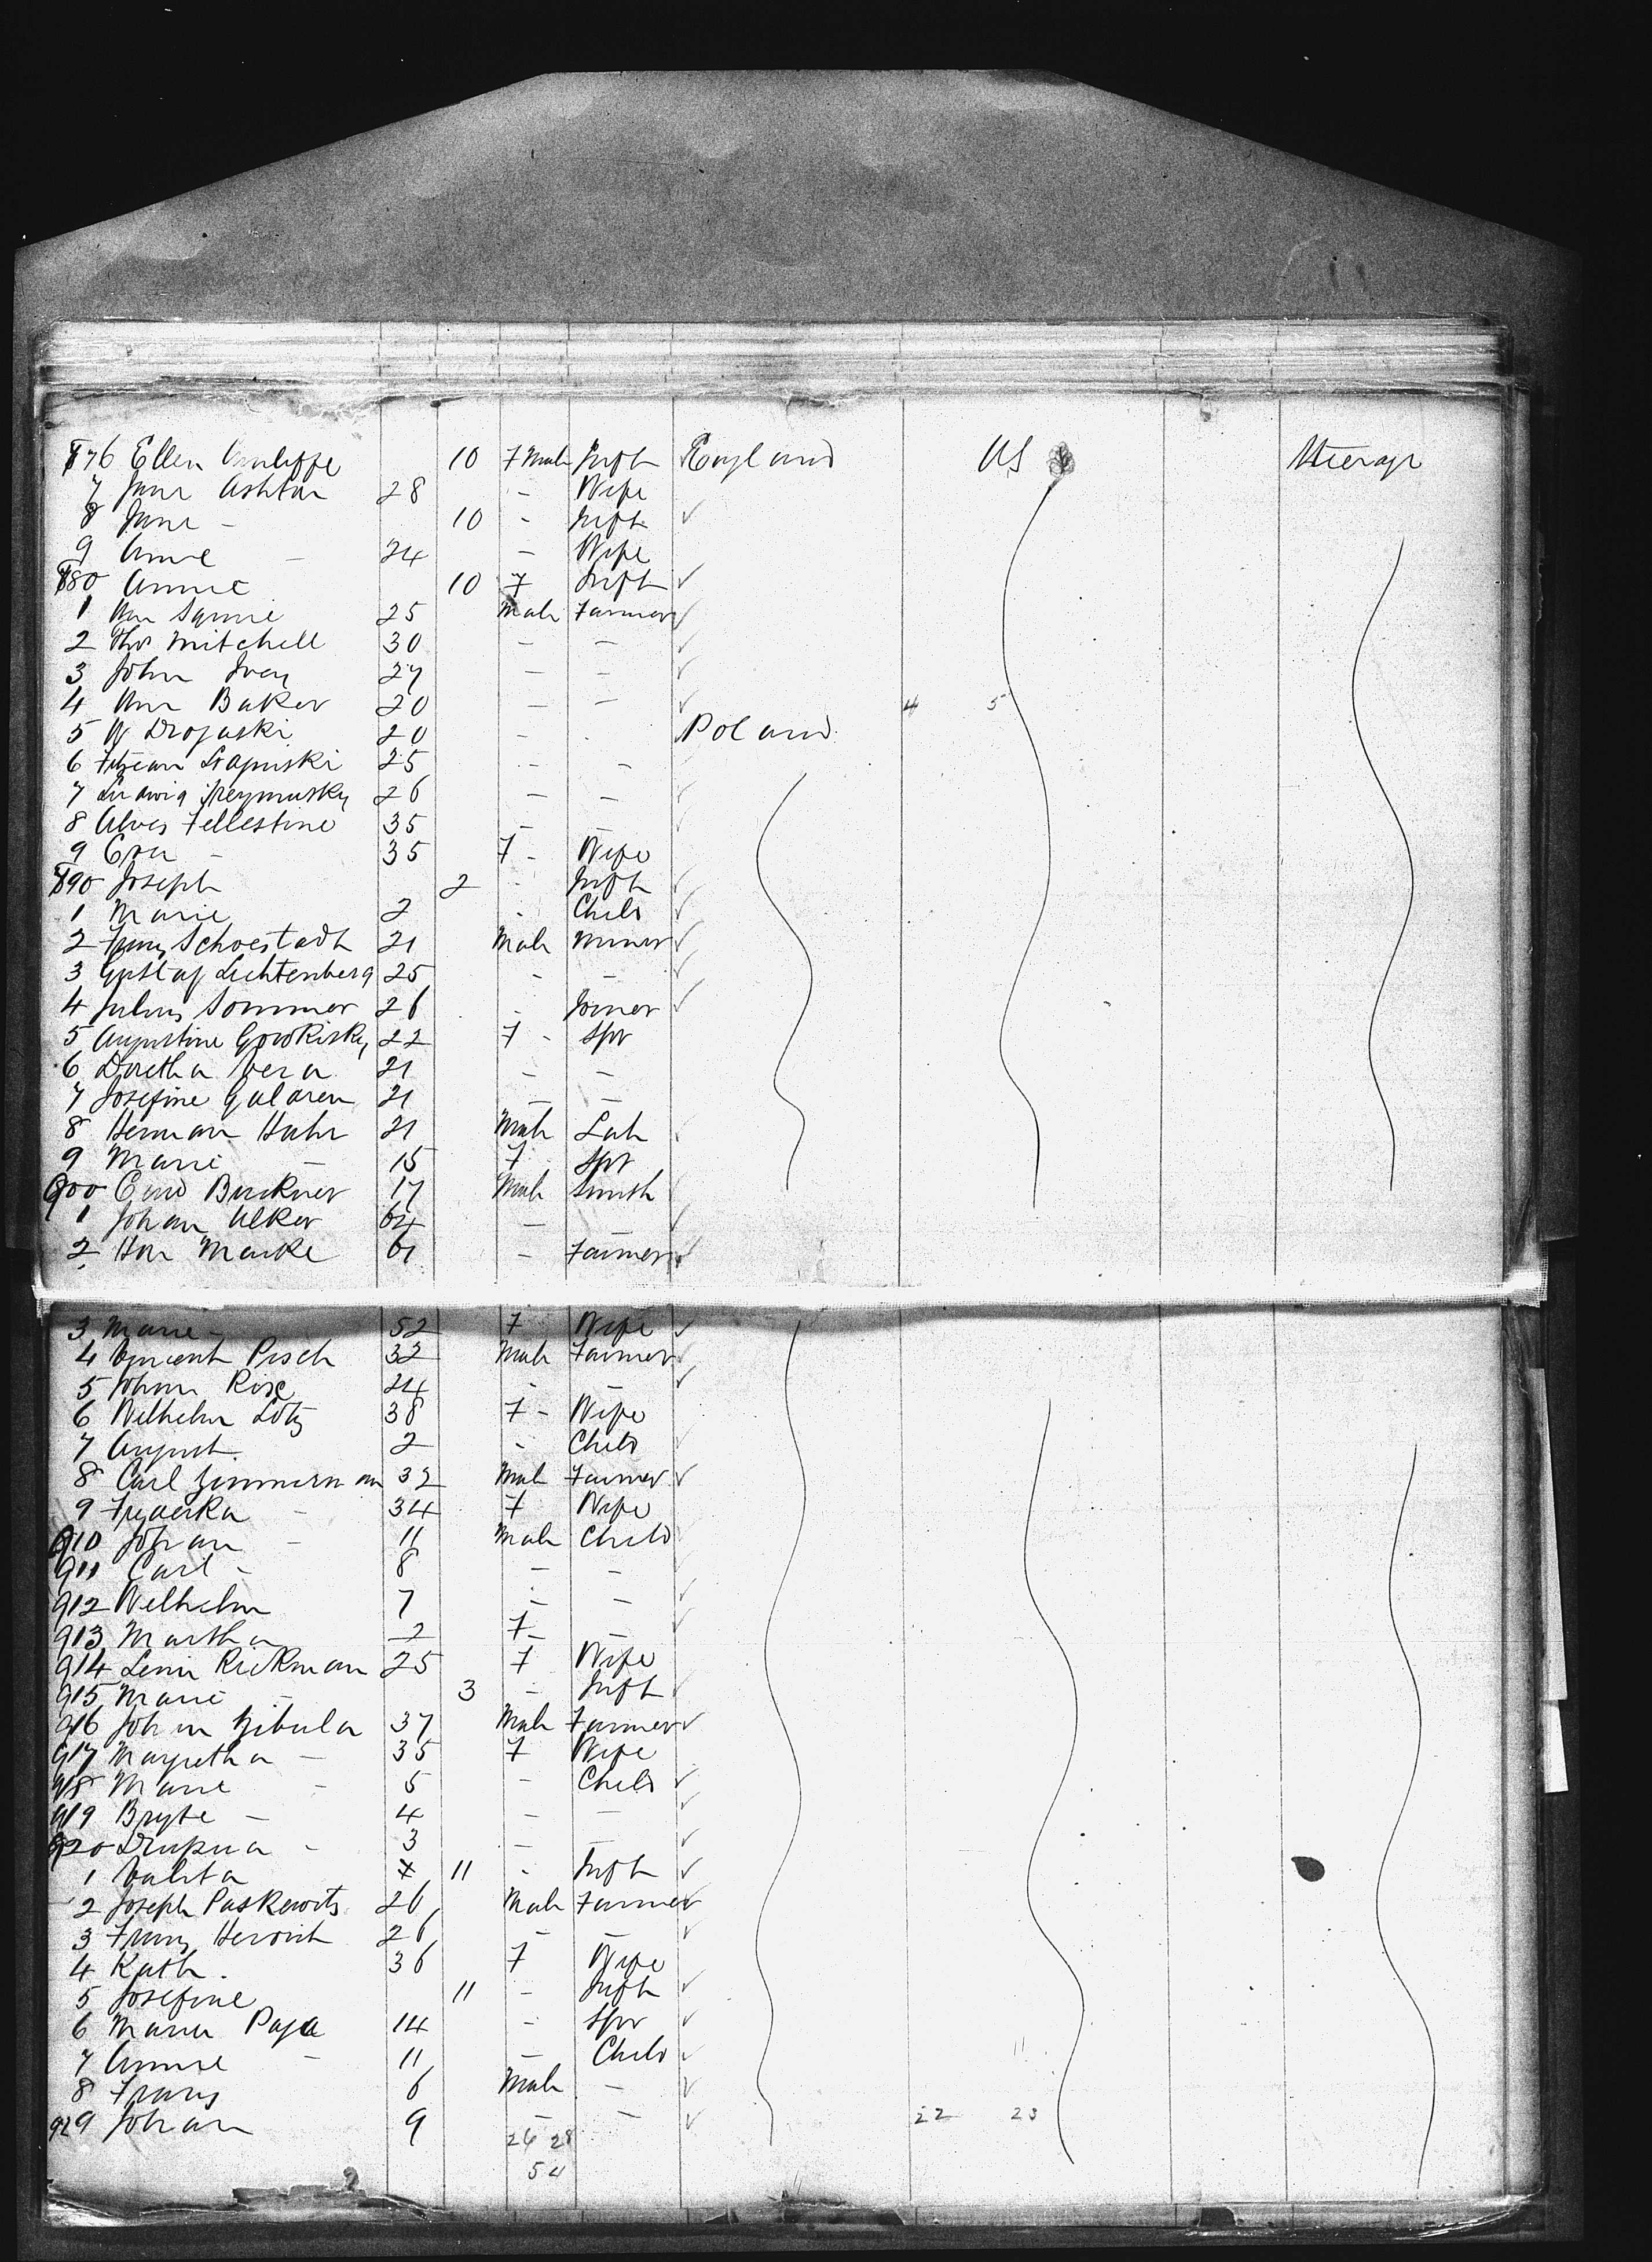 876 Ellen Cunliffe 10 Female Inft England US Steerage
7 Jane Ashton 28 - Wife
8 Jane - 10 - Inft ✓
9 Anne - 24 - Wife
880 Annie 10 F Inft ✓
1 Wm Squire 25 Male Farmer ✓
2 Thos Mitchell 30 - - ✓
3 John Ivey 27 - - ✓
4 Wm Baker 20 - - ✓ 4 5
5 20 - Poland
6 25 - -
7 Ludwig 26 - - ✓
8 Alvis Fellestine 35 - -
9 Eva - 35 F - Wife
890 Joseph 2 - Inft ✓
1 Marie 2 - Child ✓
2 Franz Schoestadt 21 Male Miner ✓
3 Gustaf Lichtenberg 25 - - ✓
4 Julius Sommer 26 - Joiner ✓
5 Augustine 22 F - Spr
6 Doretha 21 - -
7 Josefine 21 - -
8 Herman Hahn 21 Male Lab ✓
9 Marie - 15 F Spr
900 Buckner 17 Male Smith ✓
1 Johan Ulker 64 - ✓
2 Marke 61 - Farmer ✓
3 Marie - 52 F Wife ✓
4 Vincent Pisch 32 Male Farmer ✓
5 Johan Rise 24 - - ✓
6 Wilhelm Lotz 38 F - Wife
7 August 2 - Child ✓
8 Carl Zimmerman 32 Male Farmer ✓
9 - 34 F Wife
910 Johan - 11 Male Child ✓
911 Carl - 8 - -
912 Wilhelm 7 - - ✓
913 Martha 2 F - - ✓
914 Rickman 25 F Wife
915 Marie - 3 - Inft ✓
916 Johan Zibula 37 Male Farmer ✓
917 Margretha - 35 F Wife
918 Marie - 5 - Child ✓
919 - 4 - - ✓
920 - 3 - - ✓
1 11 - Inft ✓
2 Joseph Paskewits 26 Male Farmer
3 Franz 26 - - ✓
4 Kath. 36 F Wife
5 Josefine 11 - Inft ✓
6 Maria Papa 14 - Spr ✓
7 Annie - 11 - Child ✓
8 Franz 6 Male - ✓
929 Johan 9 - - ✓ 22 23
26 28
54